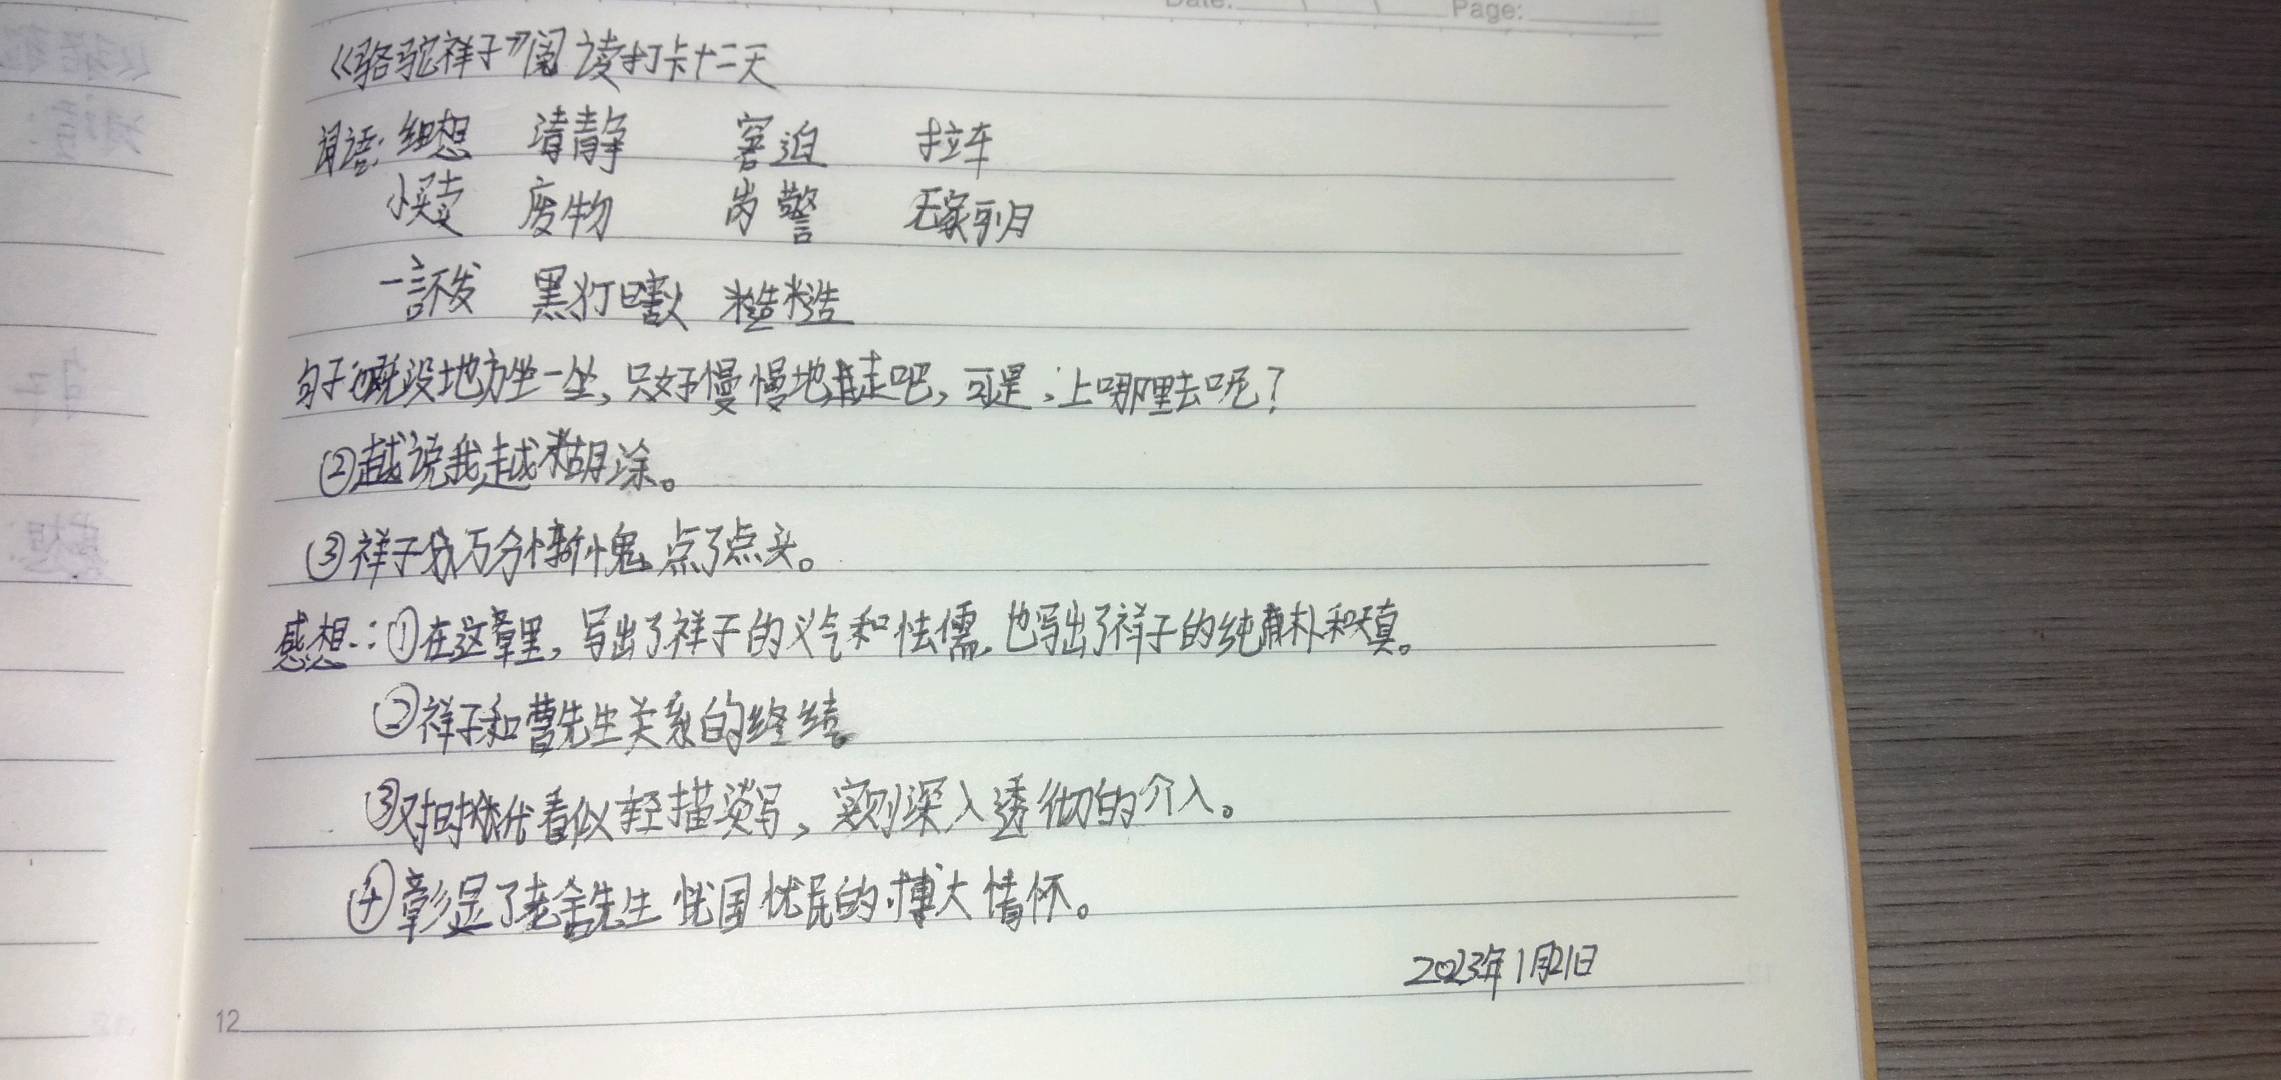 Date: Page:
《骆驼祥子》阅读打卡十二天
词语: 细想 清静 窘迫 拉车
小买卖 废物 岗警 无家可归
一言不发 黑灯瞎火 糙糙
句子①既没地方坐一坐,只好慢慢地走吧,可是,上哪里去呢?
②越说我越糊涂。
③祥子万分惭愧 点了点头。
感想:①在这章里,写出了祥子的义气和怯懦,也写出了祥子的纯朴和天真。
②祥子和曹先生关系的终结。
③对时代看似轻描淡写,实则深入透彻的介入。
④彰显了老舍先生忧国忧民的博大情怀。
2023年1月21日
12